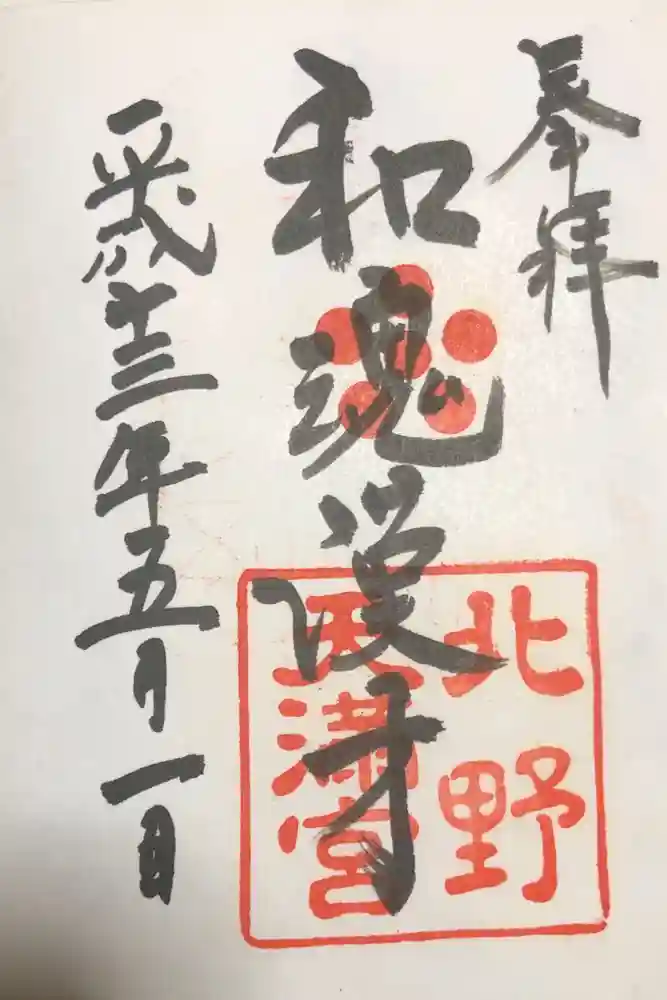 奉拝
和魂漢才
平成十三年五月一日
北野
天満宮